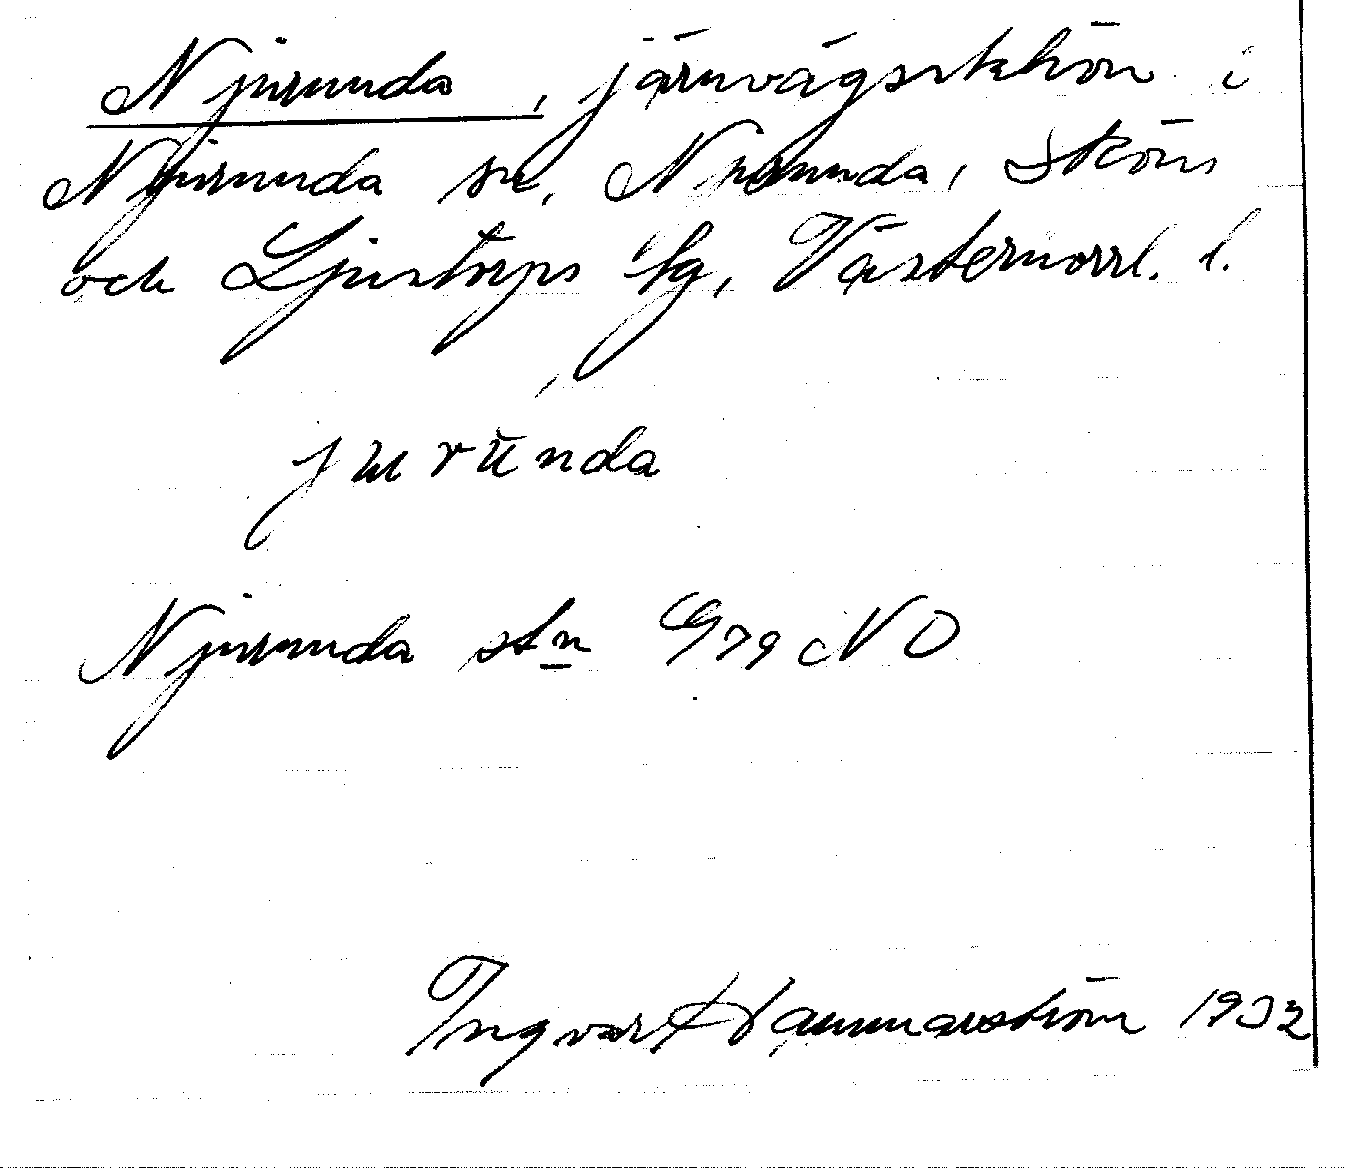 Njurunda, järnvägsstation i
Njurunda sn, Njurunda, Sköns
och Ljustorps tg, Västernorrl. l.
jurŭnda
Njurunda stn G79 NO
Ingvar Hammarström 1932